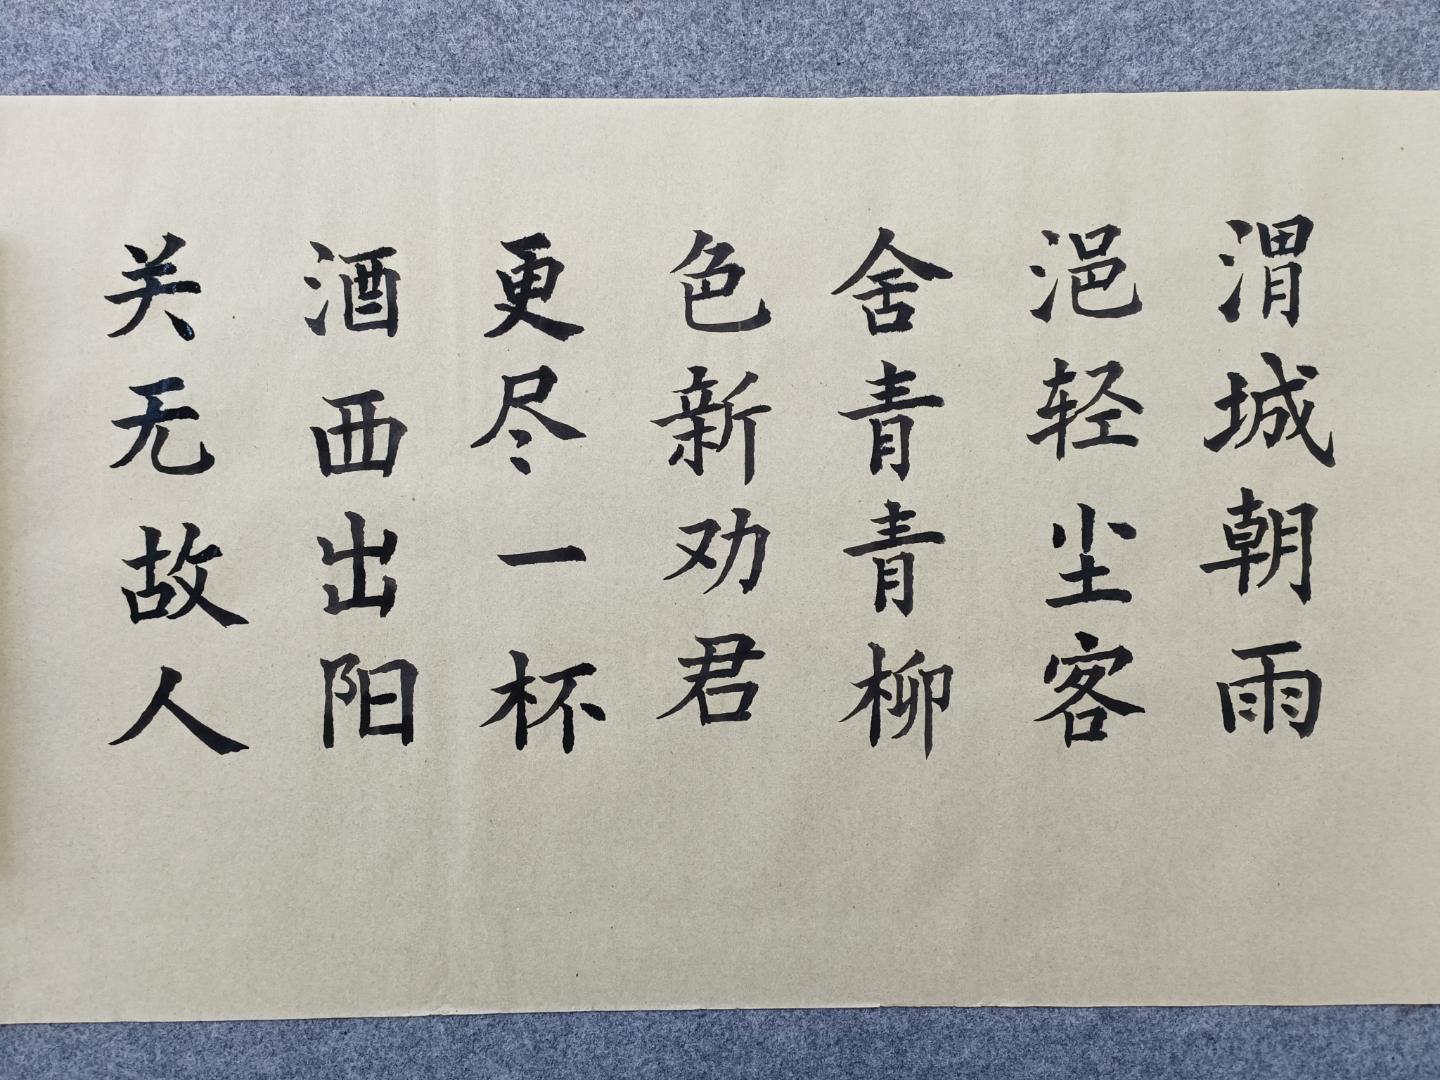 渭城朝雨
浥轻尘客
舍青青柳
色新劝君
更尽一杯
酒西出阳
关无故人